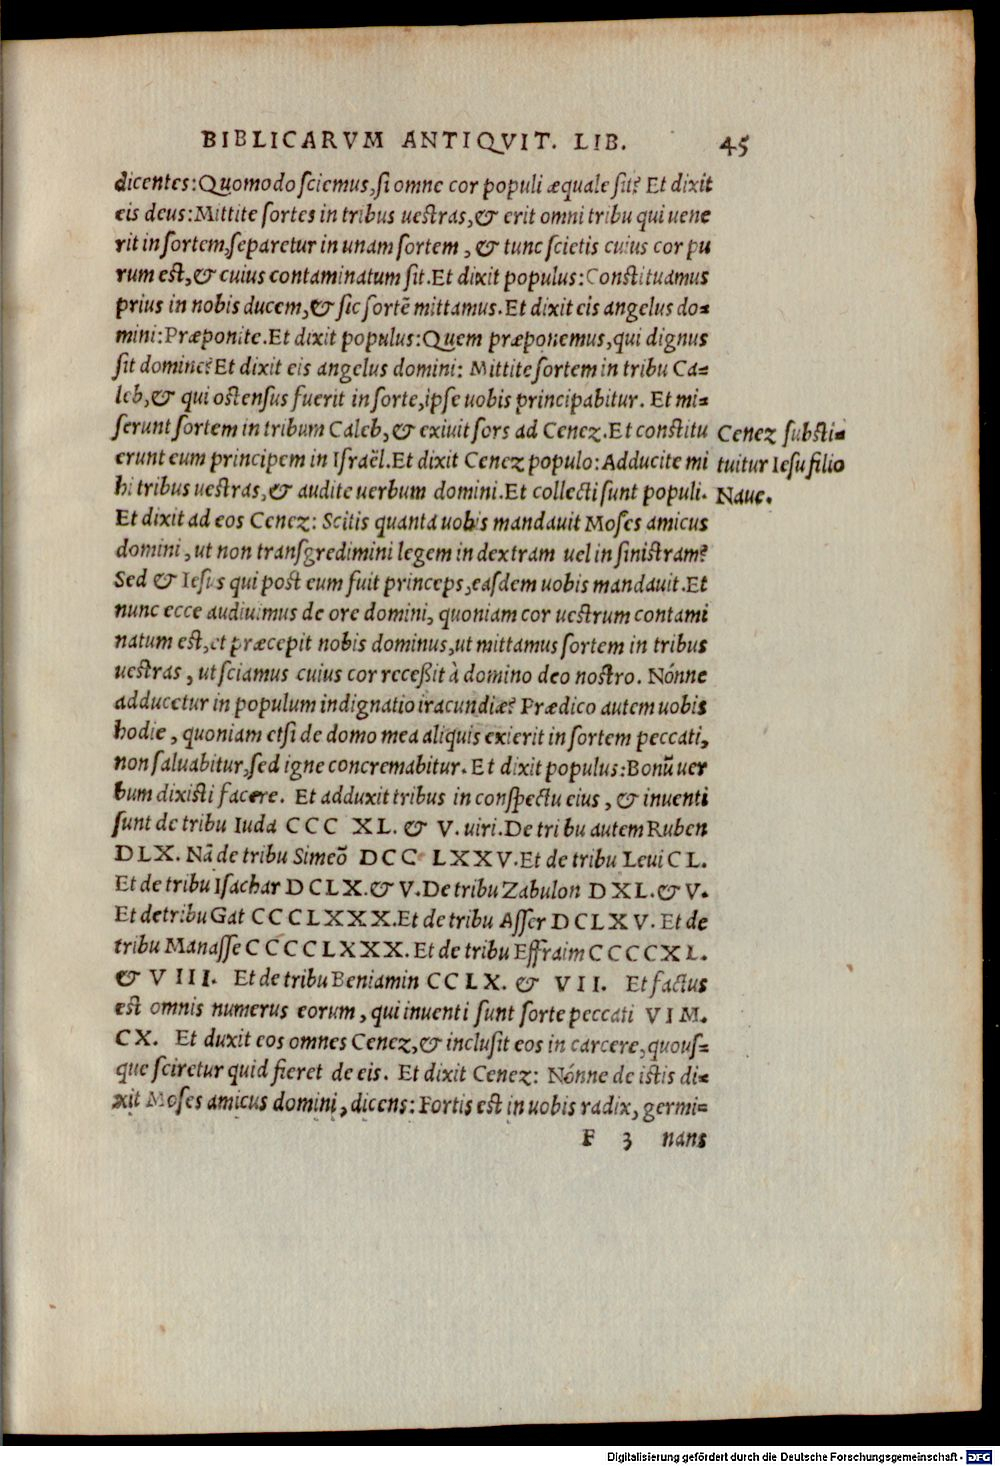 BIBLICARVM ANTIQVIT. LIB. 45
dicentes: Quomodo sciemus, si omne cor populi æquale sit? Et dixit
eis deus: Mittite sortes in tribus uestras, & erit omni tribu qui uene
rit in sortem, separetur in unam sortem, & tunc scietis cuius cor pu
rum est, & cuius contaminatum sit. Et dixit populus: Constituamus
prius in nobis ducem, & sic sortē mittamus. Et dixit eis angelus do-
mini: Præponite. Et dixit populus: Quem præponemus, qui dignus
sit domine? Et dixit eis angelus domini: Mittite sortem in tribu Ca-
leb, & qui ostensus fuerit in sorte, ipse uobis principabitur. Et mi-
serunt sortem in tribum Caleb, & exiuit sors ad Cenez. Et constitu
erunt eum principem in Israël. Et dixit Cenez populo: Adducite mi
hi tribus uestras, & audite uerbum domini. Et collecti sunt populi.
Cenez substi-
tuitur Iesu filio
Naue.
Et dixit ad eos Cenez: Scitis quanta uobis mandauit Moses amicus
domini, ut non transgredimini legem in dextram uel in sinistram?
Sed & Iesus qui post eum fuit princeps, easdem uobis mandauit. Et
nunc ecce audiuimus de ore domini, quoniam cor uestrum contami
natum est, et præcepit nobis dominus, ut mittamus sortem in tribus
uestras, ut sciamus cuius cor receßit à domino deo nostro. Nónne
adducetur in populum indignatio iracundiæ? Prædico autem uobis
hodie, quoniam etsi de domo mea aliquis exierit in sortem peccati,
non saluabitur, sed igne concremabitur. Et dixit populus: Bonū uer
bum dixisti facere. Et adduxit tribus in conspectu eius, & inuenti
sunt de tribu Iuda CCC XL. & V. uiri. De tribu autem Ruben
DLX. Nā de tribu Simeō DCC LXXV. Et de tribu Leui CL.
Et de tribu Isachar DCLX. & V. De tribu Zabulon DXL. & V.
Et de tribu Gat CCCLXXX. Et de tribu Asser DCLXV. Et de
tribu Manasse CCCCLXXX. Et de tribu Effraim CCCCXL.
& VIII. Et de tribu Beniamin CCLX. & VII. Et factus
est omnis numerus eorum, qui inuenti sunt sorte peccati VIM.
CX. Et duxit eos omnes Cenez, & inclusit eos in carcere, quous-
que sciretur quid fieret de eis. Et dixit Cenez: Nónne de istis di-
xit Moses amicus domini, dicens: Fortis est in uobis radix, germi-
F 3 nans
Digitalisierung gefördert durch die Deutsche Forschungsgemeinschaft - DFG